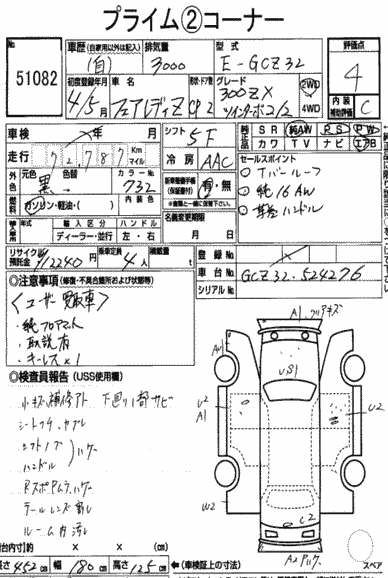 プライム②コーナー
No.
51082
車歴(自家用以外は記入) 排気量 型式 評価点
(自) 3000 E-GCZ32 4
初度登録年月 車名 ドア数 グレード
4/5月 フェアレディZ CP 2 300ZX ツインターボ2/2 2WD 4WD
内装評価 C
車検 年 月 シフト 5F
純正品 SR 純AW RS PW
カワ TV ナビ エアB
走行 72,787 Km マイル 冷房 AAC
セールスポイント
○Tバールーフ
○純16AW
○革巻ハンドル
外色 元色 黒 色替 カラーNo. 732
新車整備手帳(保証書付) 有・無
燃料 ガソリン・軽油・( ) 内装色
年式 輸入区分 ハンドル
ディーラー・並行 左・右
名義変更期限 月 日
リサイクル預託金 12240円 乗車定員 4人 積載量 t
登録No.
車台No. GCZ32-524276
シリアルNo.
◎注意事項(修復・不具合箇所および状態等)
〈ユーザー買取車〉
・純フロアマット
・取説有
・キーレス×1
◎検査員報告(USS使用欄)
小キズ補修アト 下廻り1部サビ
シートスリ、ヤブレ
シフトノブ
ハンドル
ハゲ
テールレンズ
ルーム内汚レ
A1
US1
U2
A1
W2
C2
荷台内寸 約 × × (cm)
長さ 452cm 幅 180cm 高さ 125cm
←(車検証上の寸法)
スペア